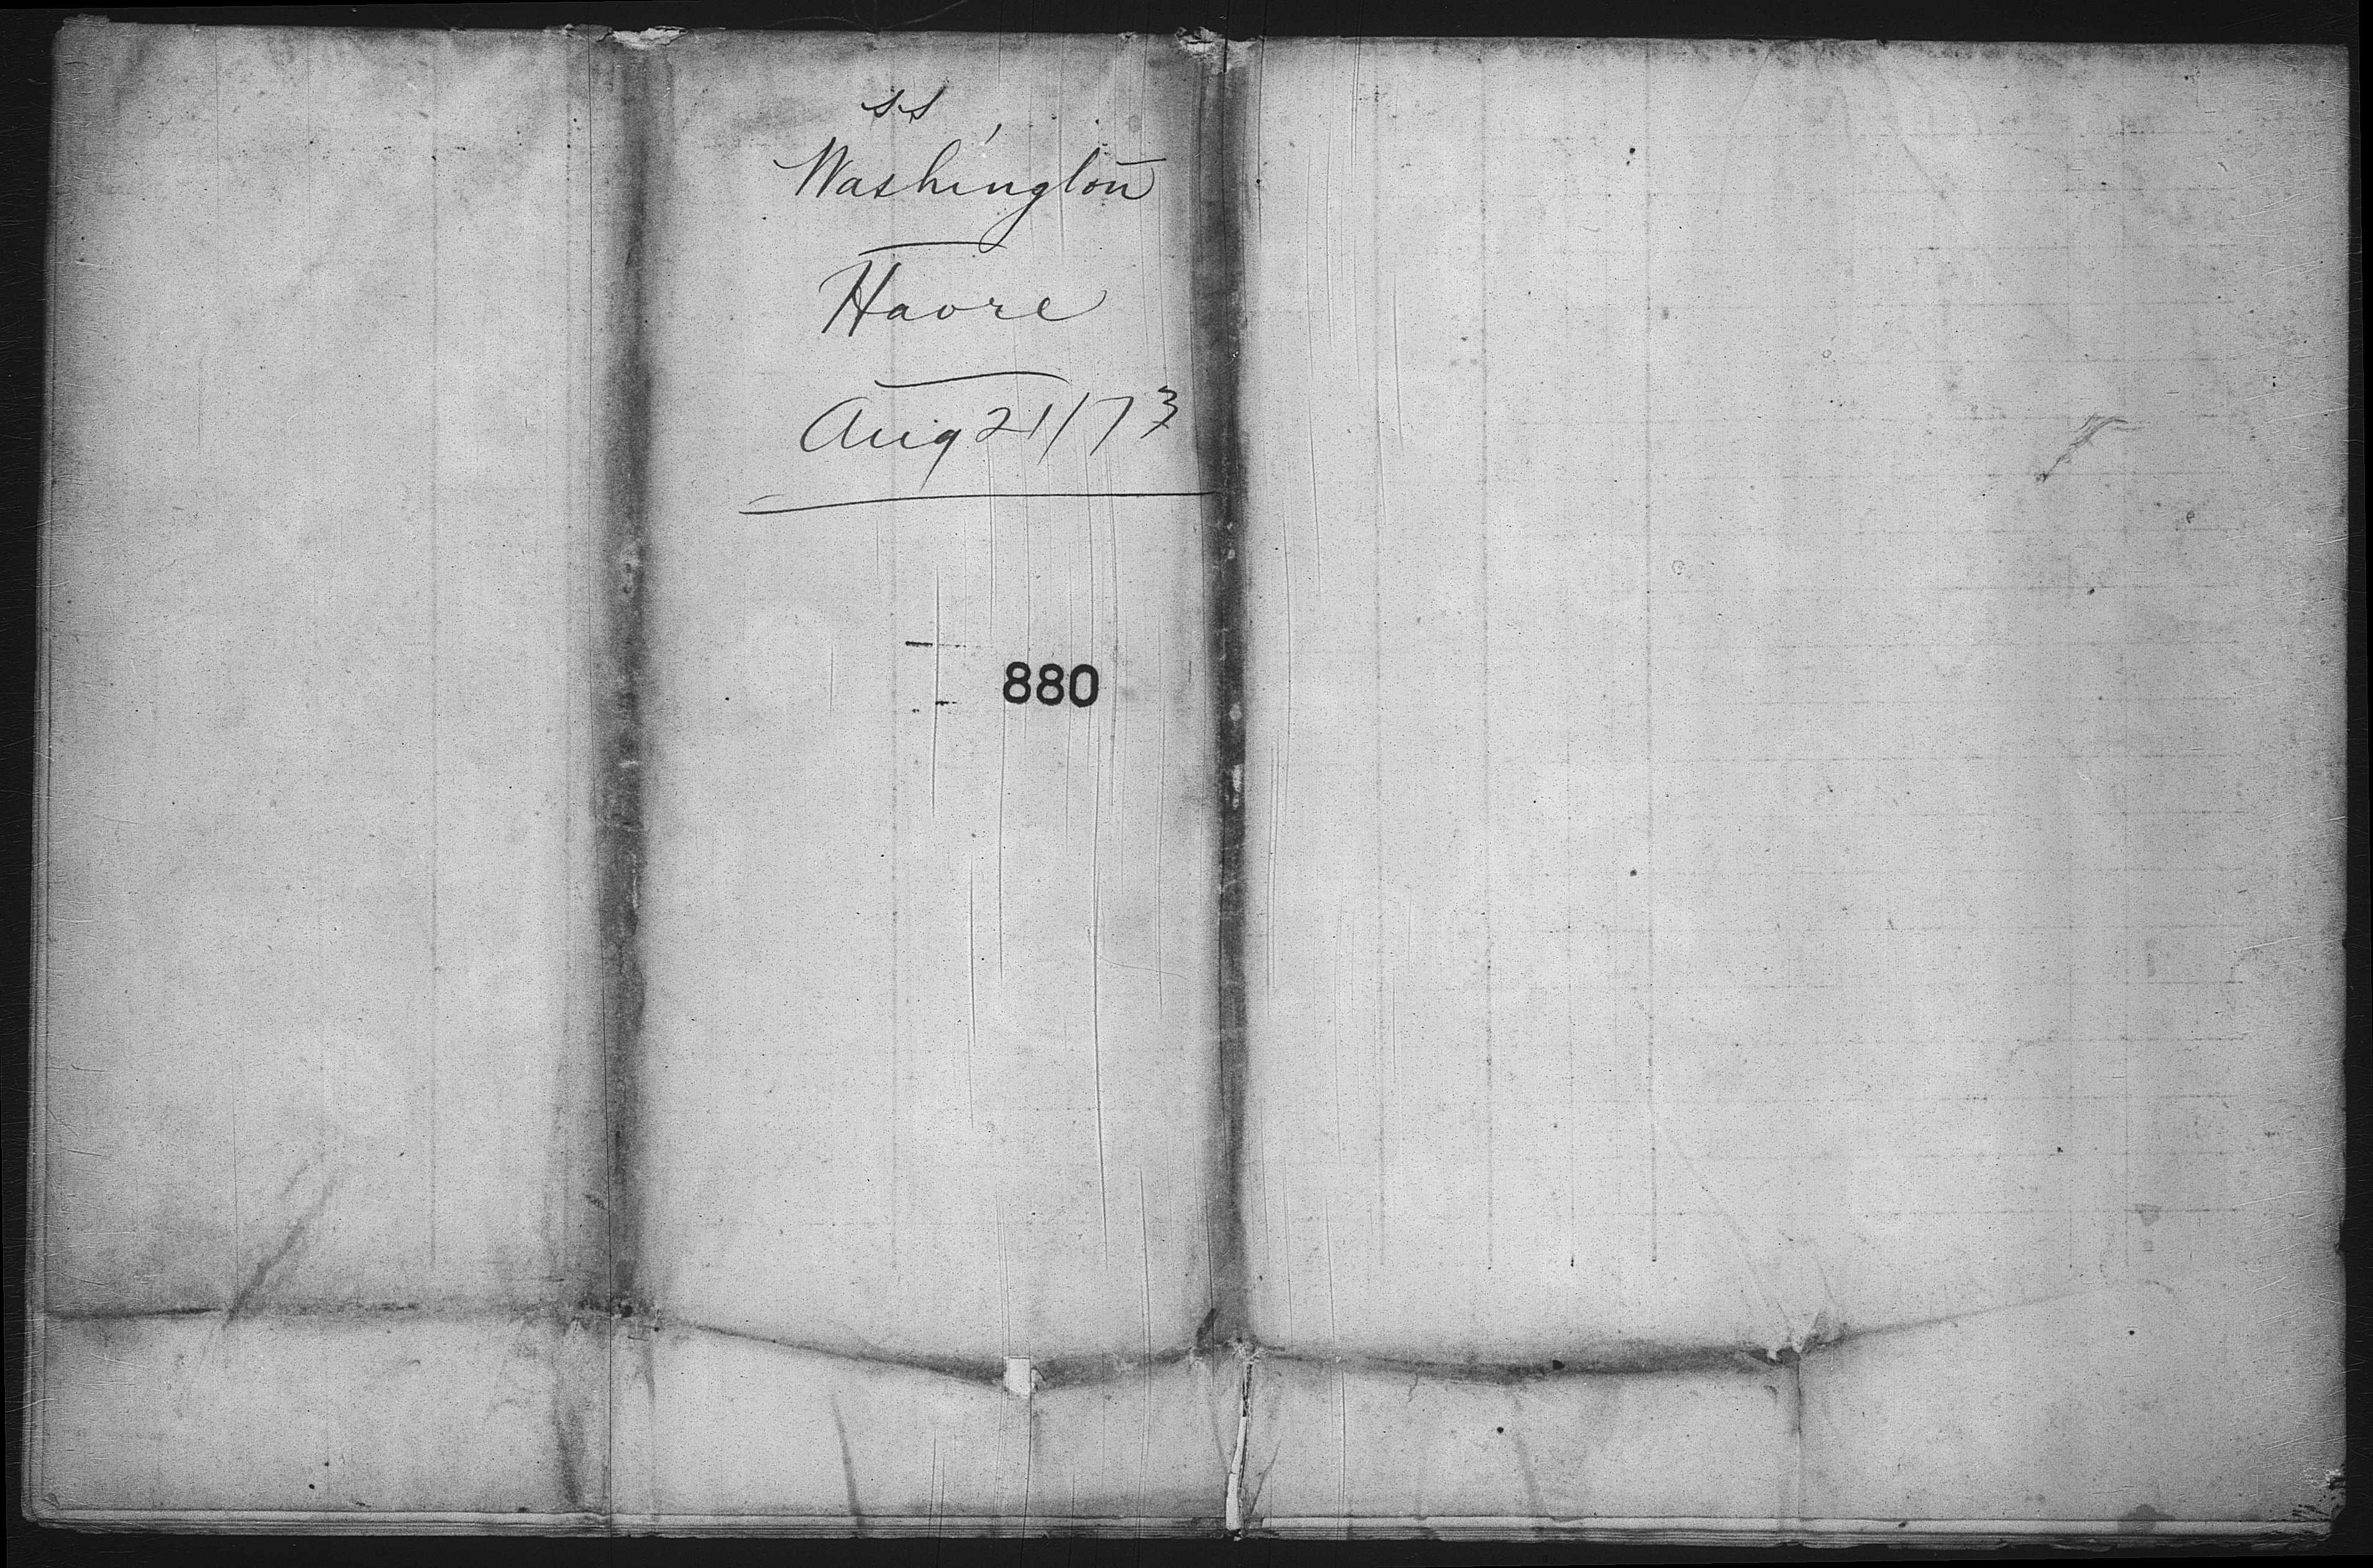 SS
Washington
Havre
Aug 21/73
880